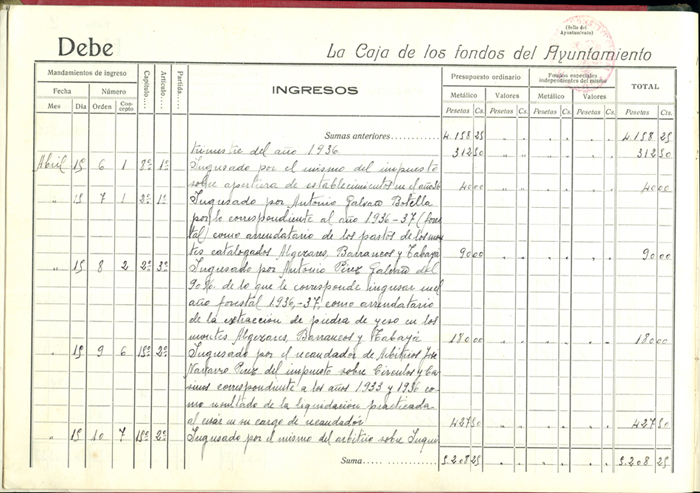 (Sello del
Ayuntamiento)
Debe La Caja de los fondos del Ayuntamiento
Mandamientos de ingreso Capítulo Artículo Partida INGRESOS Presupuesto ordinario Fondos especiales independientes del mismo TOTAL
Fecha Número Metálico Valores Metálico Valores
Mes Día Orden Concepto Pesetas Cs. Pesetas Cs. Pesetas Cs. Pesetas Cs. Pesetas Cs.
Sumas anteriores 4.158 25 4.158 25
trimestre del año 1936 312 50 312 50
Abril 15 6 1 8º 1º Ingresado por el mismo del impuesto
sobre apertura de establecimientos en el año 40 00 40 00
" 15 7 1 2º 1º Ingresado por Antonio Galvañ Botella
por lo correspondiente al año 1936-37 (fores
tal) como arrendatario de los pastos de los mon
tes catalogados Algezares, Barrancos y Tabaya 90 00 90 00
" 15 8 2 2º 3º Ingresado por Antonio Pérez Galvañ del
90% de lo que le corresponde ingresar en el
año forestal 1936-37, como arrendatario
de la extracción de piedra de yeso en los
montes Algezares, Barrancos y Tabaya 180 00 180 00
" 15 9 6 15º 2º Ingresado por el recaudador de Arbitrios José
Navarro Pérez del impuesto sobre Círculos y Ca
sinos correspondiente a los años 1933 y 1936 co
mo resultado de la liquidación practicada
al cesar en su cargo de recaudador 427 50 427 50
" 15 10 7 15º 2º Ingresado por el mismo del arbitrio sobre Inqui
Suma 5.208 25 5.208 25